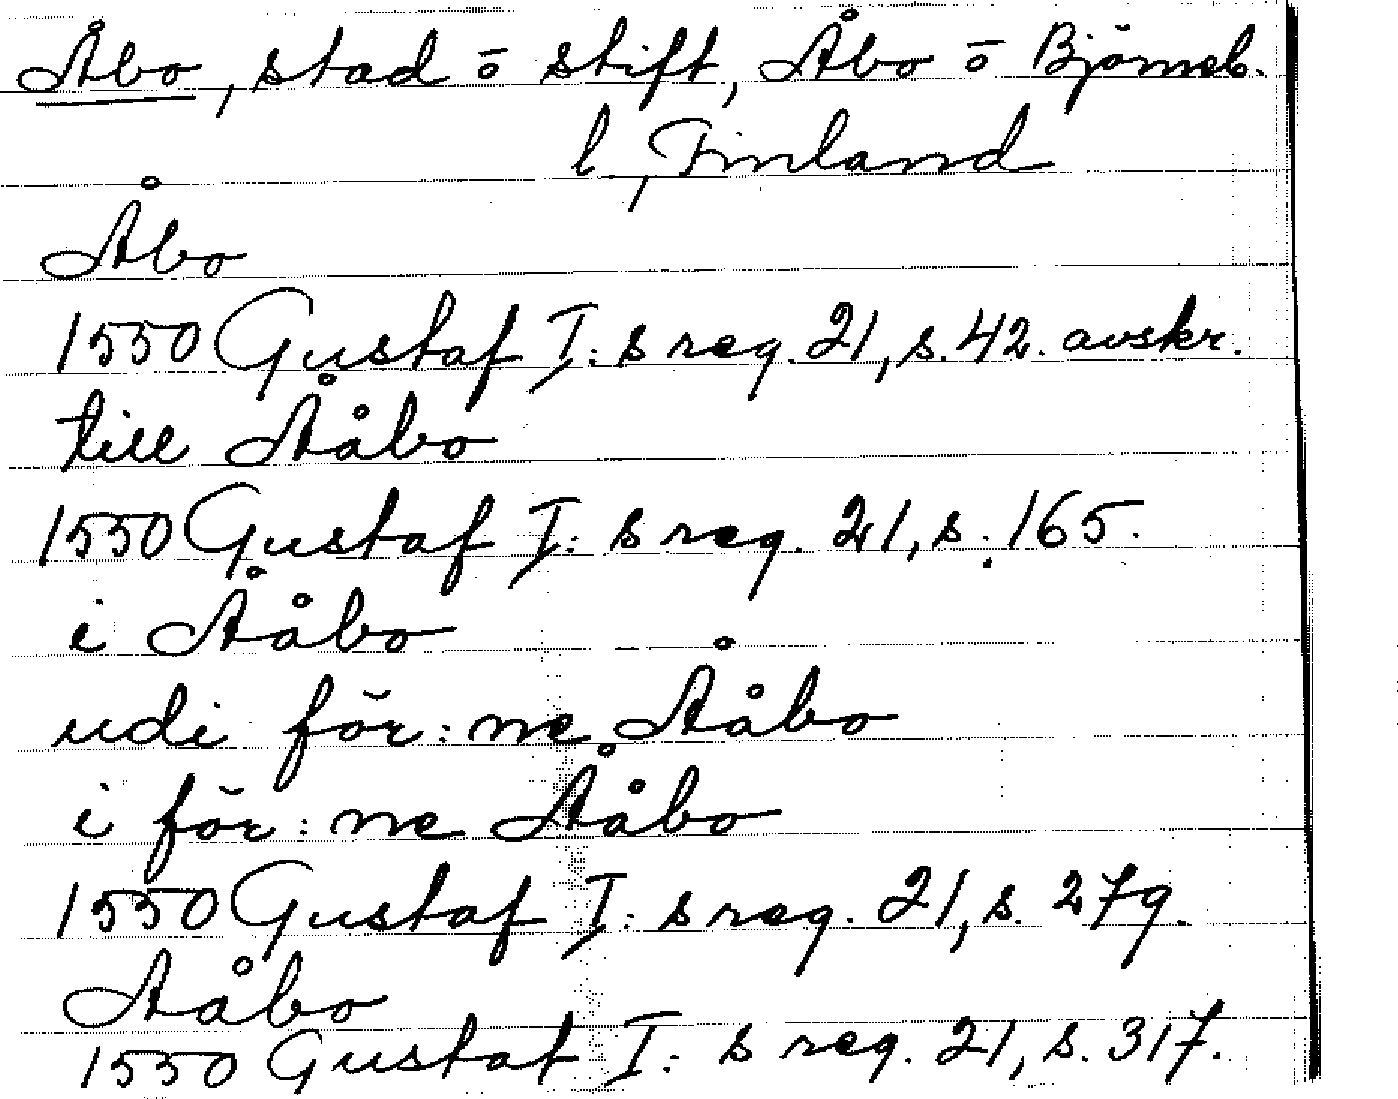 Åbo, stad ō stift, Åbo ō Björneb.
l, Finland
Åbo
1550 Gustaf I:s reg. 21, s. 42. avskr.
till Ååbo
1550 Gustaf I:s reg. 21, s. 165.
i Ååbo
udi för:ne Ååbo
i för:ne Ååbo
1550 Gustaf I:s reg. 21, s. 279.
Aåbo
1550 Gustaf I:s reg. 21, s. 317.